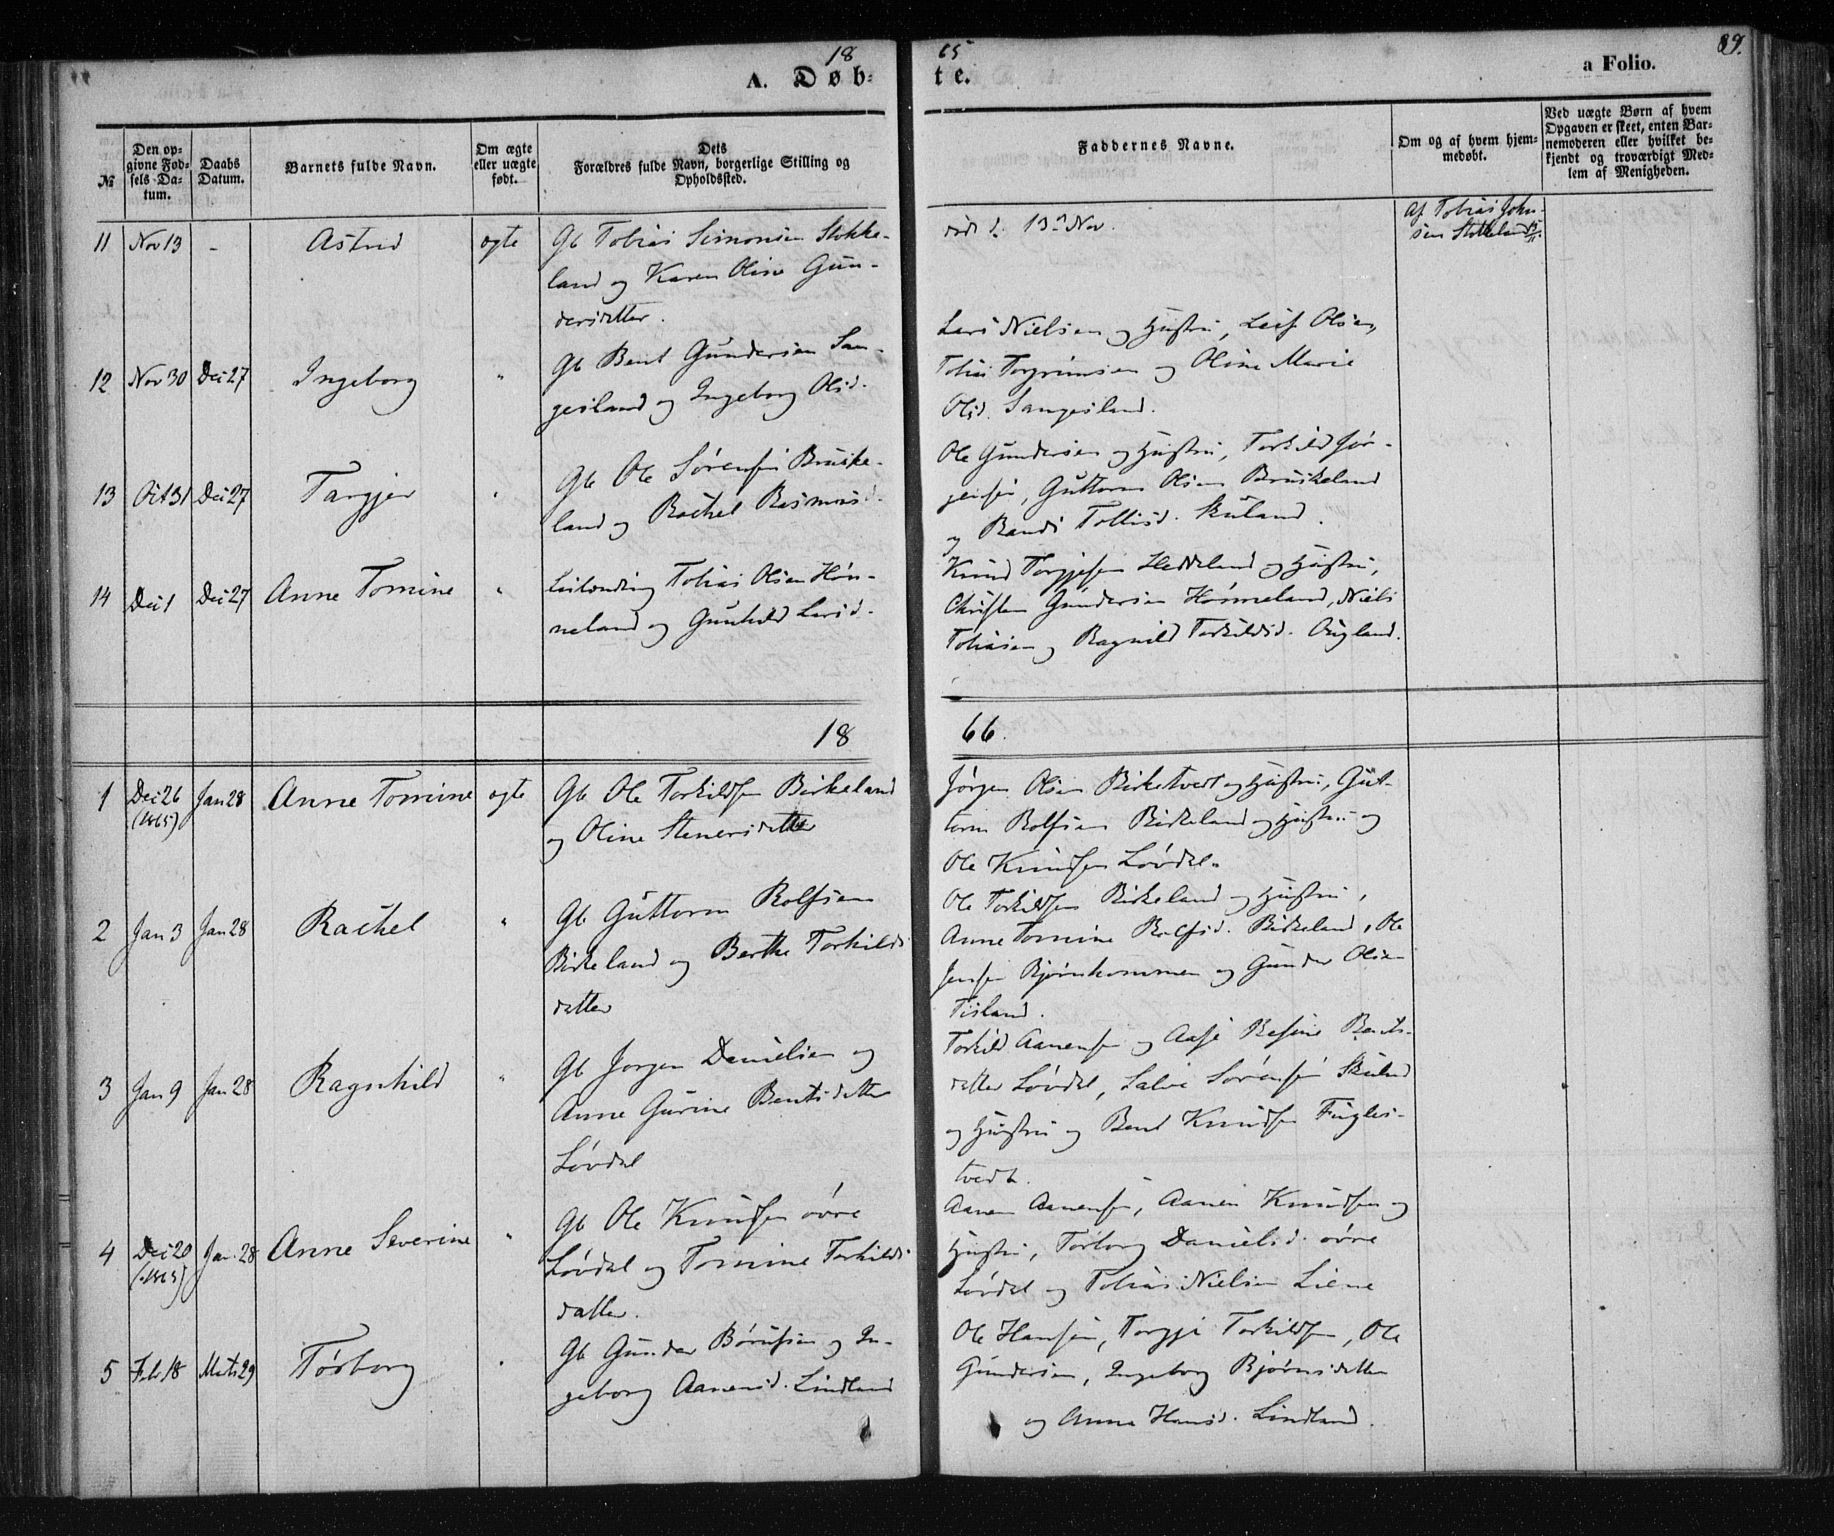 18 65 89.
A. Døb- te. a Folio.
№
Den op-
givne Fød-
sels Da-
tum.
Daabs
Datum.
Barnets fulde Navn.
Om ægte
eller uægte
født.
Dets
Forældres fulde Navn, borgerlige Stilling og
Opholdssted.
Faddernes Navne.
Om og af hvem hjem-
medøbt.
Ved uægte Børn af hvem
Opgaven er skeet, enten Bar-
nemoderen eller hvilket be-
kjendt og troværdigt Med-
lem af Menigheden.
11 Nov 13 - Astrid ægte Gb Tobias Simonsen Stokke-
land og Karen Oline Gun-
dersdatter.
død d. 13de Nov.
Af Tobias John-
sen Stokkeland
12 Nov 30 Dec 27 Ingeborg " Gb Bent Gundersen San-
gesland og Ingeborg Olsd.
Lars Nielsen og Hustru, Leif Olsen,
Tobias Torgrimsen og Oline Marie
Olsd. Sangesland.
13 Oct 31 Dec 27 Targjer " Gb Ole Sørensen Bruske-
land og Rachel Rasmusd.
Ole Gundersen og Hustru, Torkild Jør-
gensen, Guttorm Olsen Bruskeland
og Randi Tollisd. Skuland.
14 Dec 1 Dec 27 Anne Tomine " Leilænding Tobias Olsen Høn-
neland og Gunhild Larsd.
Knud Torgjesen Heddeland og Hustru,
Christen Gundersen Hønneland, Niels
Tobiasen og Ragnild Torkildsd. Øigland.
18 66.
1 Dec 26 (1865) Jan 28 Anne Tomine ægte Gb Ole Torkildsen Birkeland
og Oline Stenersdatter
Jørgen Olsen Birketvedt og Hustru, Gut-
torm Rolfsen Birkeland og Hustru og
Ole Knudsen Løvdal.
2 Jan 3 Jan 28 Rachel " Gb Guttorm Rolfsen
Birkeland og Berthe Torkilds
datter
Ole Torkildsen Birkeland og Hustru,
Anne Tomine Rolfsd. Birkeland, Ole
Jensen Bjørnkommen og Gunder Olsen
Tisland.
3 Jan 9 Jan 28 Ragnhild " Gb Jørgen Danielsen og
Anne Gurine Bentsdatter
Løvdal
Torkild Aanensen og Aase Resine Bents-
datter Løvdal, Salve Sørensen Skuland
og Hustru og Bent Knudsen Fugles-
tvedt.
4 Dec 20 (1865) Jan. 28 Anne Severine " Gb Ole Knudsen øvre
Løvdal og Tomine Torkilds
datter.
Aanen Aanensen, Aanen Knudsen og
Hustru, Torborg Danielsd. øvre
Løvdal og Tobias Nielsen Liene
5 Feb 18 Mts 29 Torborg " Gb Gunder Børufsen og In-
geborg Aanensd. Lindland
Ole Hansen, Torgje Torkildsen, Ole
Gundersen, Ingeborg Bjørnsdatter
og Anna Hansd. Lindland.